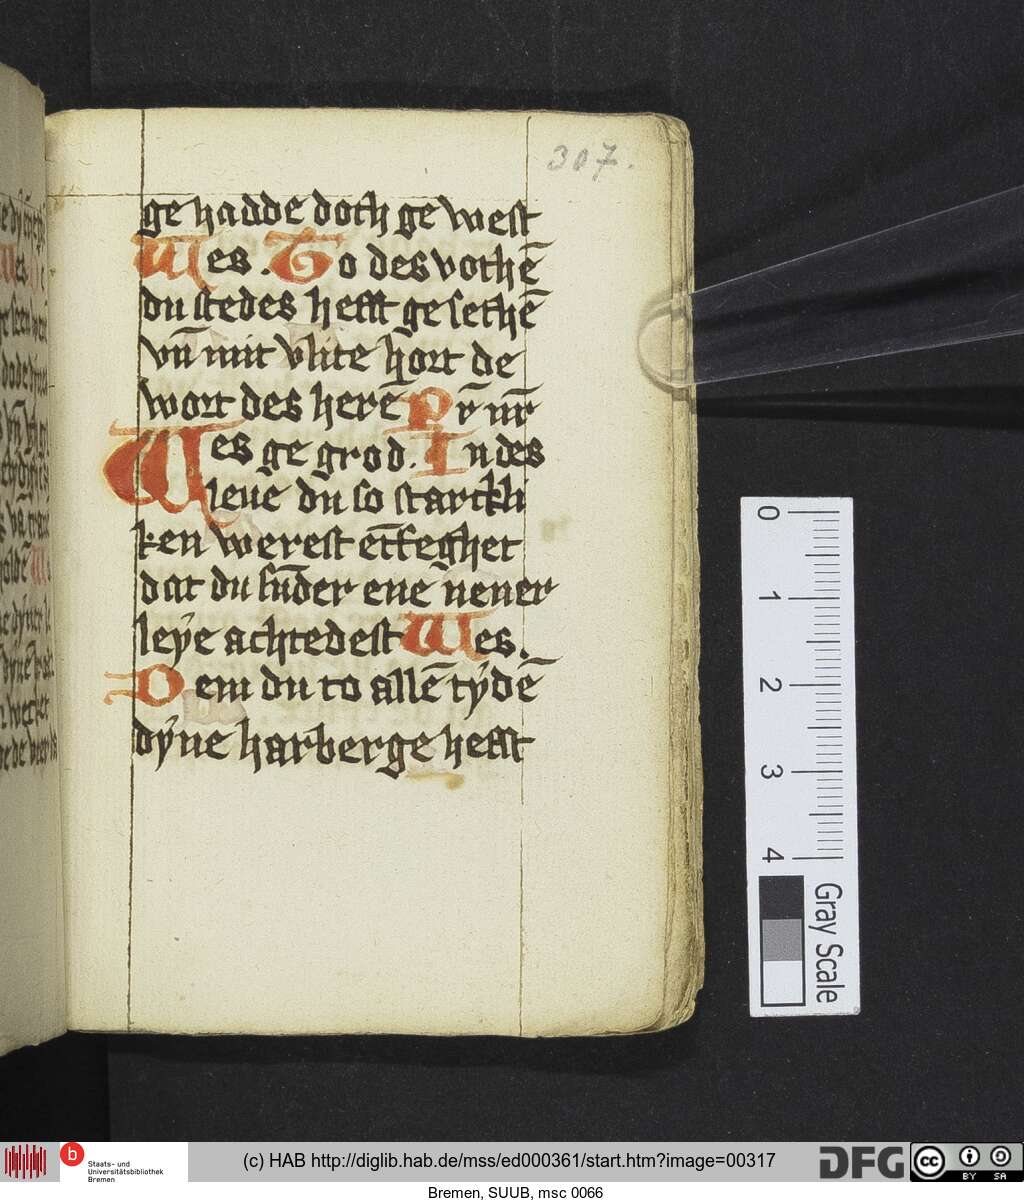 307.
ge hadde doch ge west
Wes . To des vothē
du stedes hefft ge sethē
vn̄ mit vlite hort de
wort des herē Pr̄ nr̄
Wes ge grod . In des
leue du so starckli
ken werest ētfeghet
dat du sn̄der ene nener
leẏe achtedest Wes .
Dem du to allē tẏdē
dẏne harberge hefft
0
1
2
3
4
Gray Scale
b
Staats- und
Universitätsbibliothek
Bremen
(c) HAB http://diglib.hab.de/mss/ed000361/start.htm?image=00317
DFG
cc
BY SA
Bremen, SUUB, msc 0066